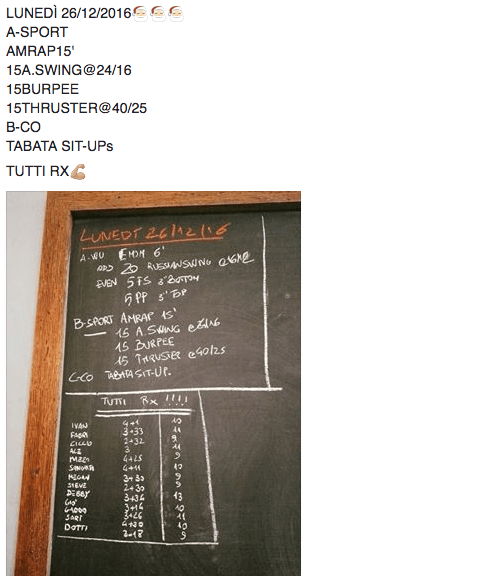 LUNEDÌ 26/12/2016🎅🏼🎅🏼🎅🏼
A-SPORT
AMRAP15'
15A.SWING@24/16
15BURPEE
15THRUSTER@40/25
B-CO
TABATA SIT-UPs
TUTTI RX💪🏼
LUNEDÌ 26/12/16
A-WU EMOM 6'
ODD 20 RUSSIAN SWING
EVEN 5 FS 3" BOTTOM
5 PP 3" TOP
B-SPORT AMRAP 15'
15 A.SWING @24/16
15 BURPEE
15 THRUSTER @40/25
C-CO TABATA SIT-UP.
TUTTI RX !!!!
IVAN 4+1 10
FABRI 3+33 11
2+32 9
ALE 3 11
4+25 9
SIMONA 4+11 10
MEGAN 3+30 9
STEVE 2+30 9
DEBBY 3+36 13
GIÒ 3+16 10
3+26 11
SARI 4+20 10
DOTTI 2+18 9